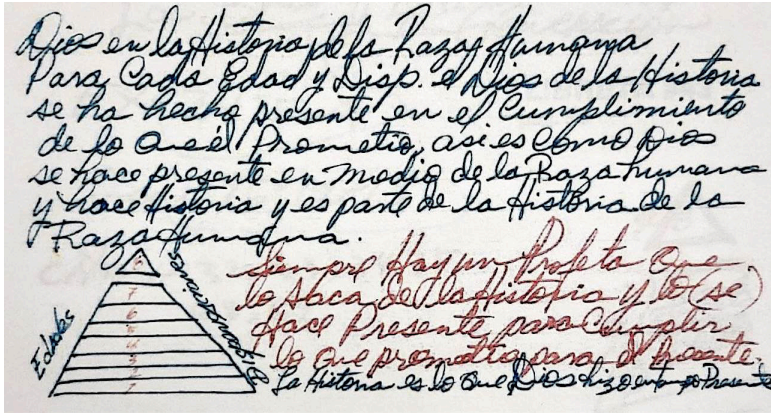 Dios en la Historia de la Raza Humana
Para Cada Edad y Disp. el Dios de la Historia
se ha hecho presente en el Cumplimiento
de lo que él Prometio, asi es como Dios
se hace presente en medio de la Raza humana
y hace Historia y es parte de la Historia de la
Raza Humana.
Siempre Hay un Profeta que
lo saca de la Historia y lo (se)
Hace Presente para Cumplir
lo que prometio para el presente.
La Historia es lo que Dios hizo en Presente
Edades
Dispensaciones
8
7
6
5
4
3
2
1